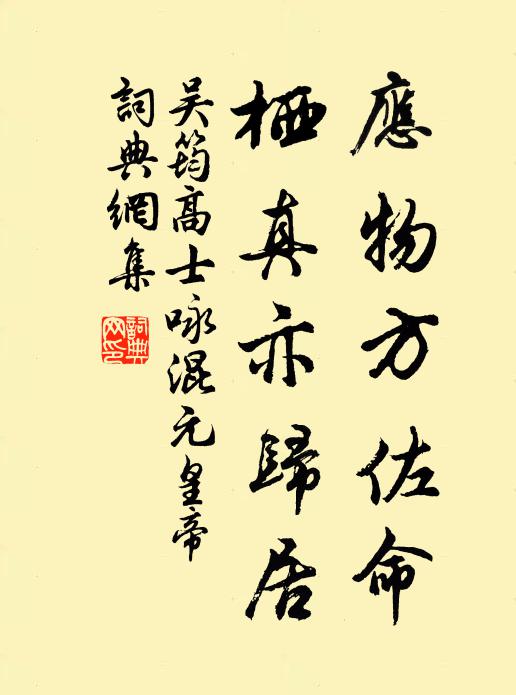 應物方佐命
栖真亦歸居
吴筠高士咏混元皇帝
詞典網集
詞典网印